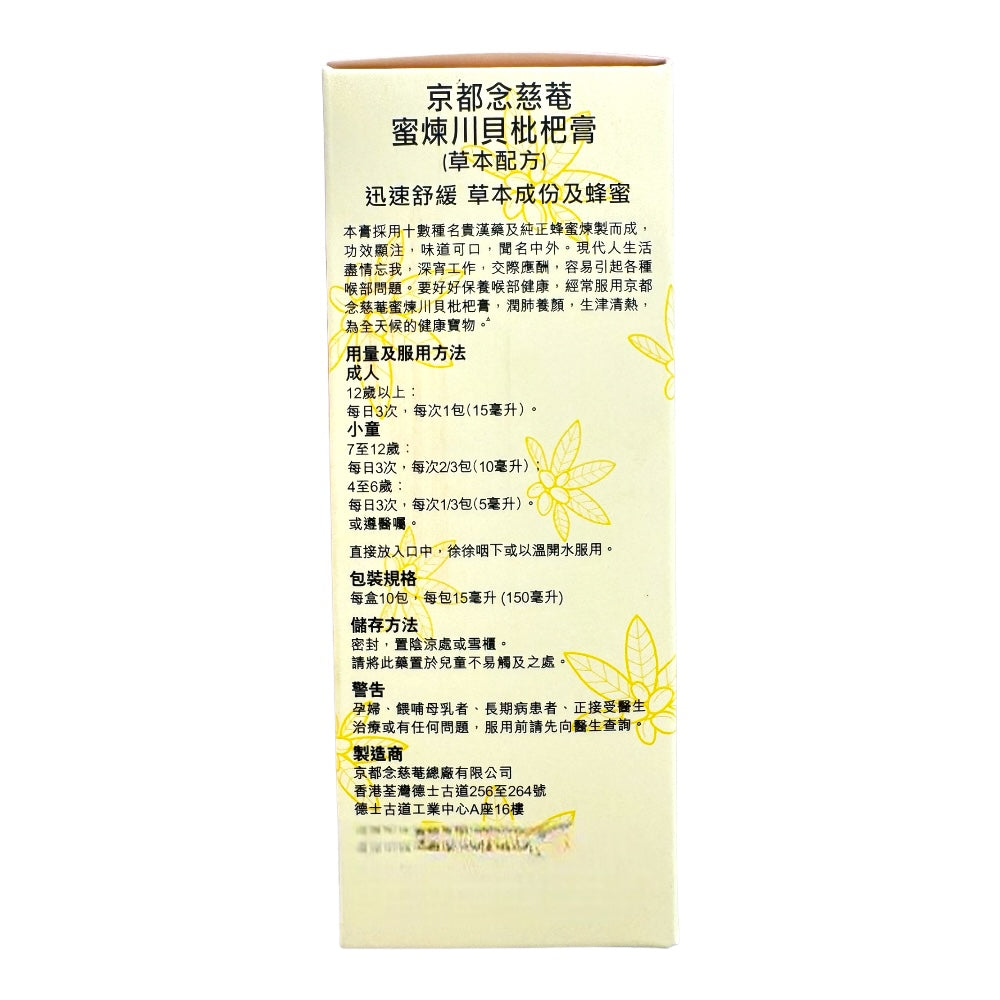 京都念慈菴
蜜煉川貝枇杷膏
(草本配方)
迅速舒緩 草本成份及蜂蜜
本膏採用十數種名貴漢藥及純正蜂蜜煉製而成，
功效顯注，味道可口，聞名中外。現代人生活
盡情忘我，深宵工作，交際應酬，容易引起各種
喉部問題。要好好保養喉部健康，經常服用京都
念慈菴蜜煉川貝枇杷膏，潤肺養顏，生津清熱，
為全天候的健康寶物。
用量及服用方法
成人
12歲以上：
每日3次，每次1包(15毫升)。
小童
7至12歲：
每日3次，每次2/3包(10毫升)；
4至6歲：
每日3次，每次1/3包(5毫升)。
或遵醫囑。
直接放入口中，徐徐咽下或以溫開水服用。
包裝規格
每盒10包，每包15毫升 (150毫升)
儲存方法
密封，置陰涼處或雪櫃。
請將此藥置於兒童不易觸及之處。
警告
孕婦、餵哺母乳者、長期病患者、正接受醫生
治療或有任何問題，服用前請先向醫生查詢。
製造商
京都念慈菴總廠有限公司
香港荃灣德士古道256至264號
德士古道工業中心A座16樓